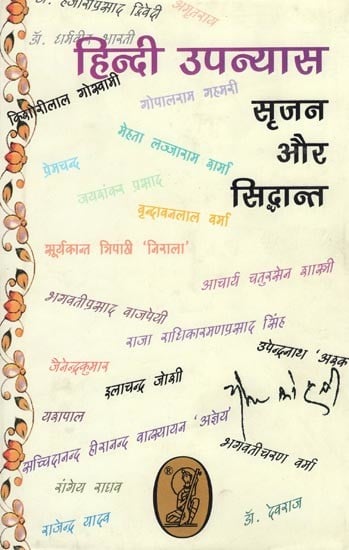 डॉ. हजारीप्रसाद द्विवेदी
अमृतराय
डॉ. धर्मवीर भारती
हिन्दी उपन्यास
किशोरीलाल गोस्वामी
गोपालराम गहमरी
सृजन
और
सिद्धान्त
मेहता लज्जाराम शर्मा
प्रेमचन्द
जयशंकर प्रसाद
वृन्दावनलाल वर्मा
सूर्यकान्त त्रिपाठी 'निराला'
आचार्य चतुरसेन शास्त्री
भगवतीप्रसाद वाजपेयी
राजा राधिकारमणप्रसाद सिंह
उपेन्द्रनाथ 'अश्क'
जैनेन्द्रकुमार
इलाचन्द्र जोशी
यशपाल
सच्चिदानन्द हीरानन्द वात्स्यायन 'अज्ञेय'
भगवतीचरण वर्मा
रांगेय राघव
राजेन्द्र यादव
®
डॉ. देवराज